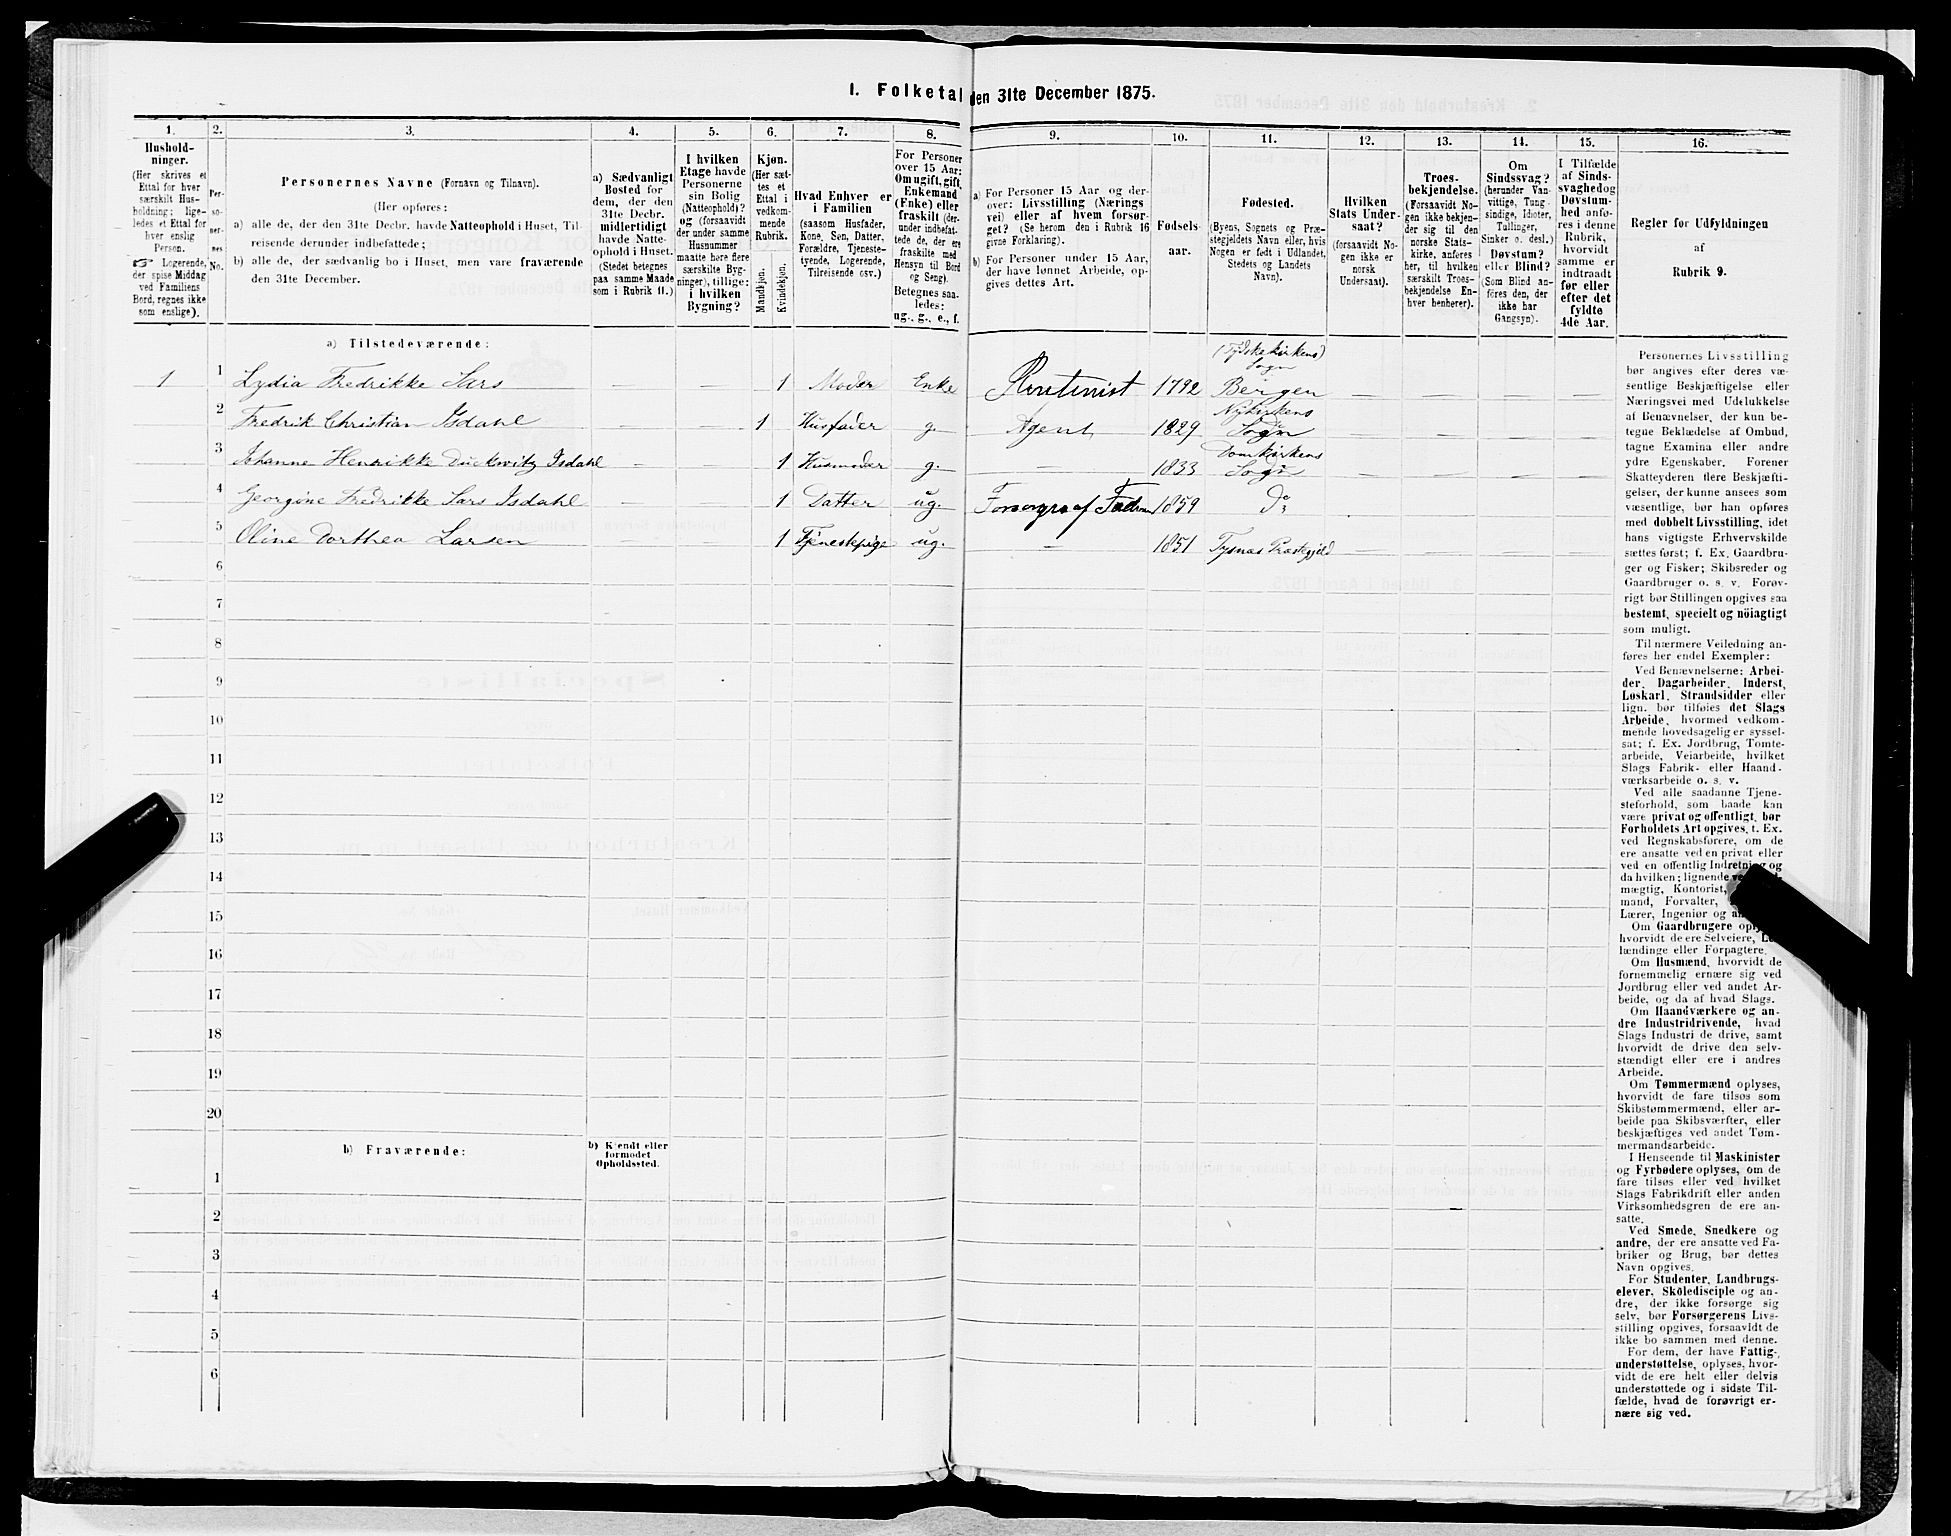 1. Folketal den 31te December 1875.
1.
Hushold-
ninger.
(Her skrives et
Ettal for hver
særskilt Hus-
holdning; lige-
ledes et Ettal for
hver enslig
Person.
☞ Logerende,
der spise Middag
ved Familiens
Bord, regnes ikke
som enslige).
2.
Per-
so-
ner-
nes
No.
3.
Personernes Navne (Fornavn og Tilnavn).
(Her opføres:
a) alle de, der den 31te Decbr. havde Natteophold i Huset, Til-
reisende derunder indbefattede;
b) alle de, der sædvanlig bo i Huset, men vare fraværende
den 31te December.
4.
a) Sædvanligt
Bosted for
dem, der den
31te Decbr.
midlertidigt
havde Natte-
ophold i Huset.
(Stedet betegnes
paa samme Maade
som i Rubrik 11.)
5.
I hvilken
Etage havde
Personerne
sin Bolig
(Natteophold)?
og (forsaavidt
der under samme
Husnummer
maatte høre flere
særskilte Byg-
ninger), tillige:
i hvilken
Bygning?
6.
Kjøn.
(Her sæt-
tes et
Ettal i
vedkom-
mende
Rubrik.
Mandkjøn.
Kvindekjøn.
7.
Hvad Enhver er
i Familien
(saasom Husfader,
Kone, Søn, Datter,
Forældre, Tjeneste-
tyende, Logerende,
Tilreisende osv.)
8.
For Personer
over 15 Aar:
Om ugift, gift,
Enkemand
(Enke) eller
fraskilt (der-
under indbefat-
tede de, der ere
fraskilte med
Hensyn til Bord
og Seng).
Betegnes saa-
ledes:
ug., g., e., f.
9.
a) For Personer 15 Aar og der-
over: Livsstilling (Nærings
vei) eller af hvem forsør-
get? (Se herom den i Rubrik 16
givne Forklaring).
b) For Personer under 15 Aar,
der have lønnet Arbeide, op-
gives dettes Art.
10.
Fødsels-
aar.
11.
Fødested.
(Byens, Sognets og Præ-
stegjeldets Navn eller, hvis
Nogen er født i Udlandet,
Stedets og Landets
Navn).
12.
Hvilken
Stats Under-
saat?
(forsaavidt No-
gen ikke er
norsk
Undersaat).
13.
Troes-
bekjendelse.
(Forsaavidt No-
gen ikke bekjen-
der sig til den
norske Stats-
kirke, anføres
her, til hvilken
særskilt Troes-
bekjendelse En-
hver henhører).
14.
Om
Sindssvag?
(herunder Van-
vittige, Tung-
sindige, Idioter,
Tullinger,
Sinker o. desl.)
Døvstum?
eller Blind?
(Som Blind an-
føres den, der
ikke har
Gangsyn).
15.
I Tilfælde
af Sinds-
svaghed og
Døvstum-
hed anfø-
res i denne
Rubrik,
hvorvidt
samme er
indtraadt
før eller
efter det
fyldte
4de Aar.
16.
Regler før Udfyldningen
af
Rubrik 9.
a) Tilstedeværende:
(Tydskekirkens)
Sogn
1 1 Lydia Fredrikke Sars — — 1 Moder Enke Rentenist 1792 Bergen — — — —
Nykirkens
2 Fredrik Christian Isdahl — — 1 Husfader g. Agent 1829 Sogn — — — —
Domkirkens
3 Johanne Henrikke Duckwitz Isdahl — — 1 Husmoder g. — 1833 Sogn — — — —
4 Georgine Fredrikke Sars Isdahl — — 1 Datter ug. Forsørges af Faderen 1859 Do — — — —
5 Oline Dorthea Larsen — — 1 Tjenestepige ug. — 1851 Tysnæs Præstegjeld — — — —
6
7
8
9
10
11
12
13
14
15
16
17
18
19
20
b) Fraværende:
b) Kjendt eller
formodet
Opholdssted.
1
2
3
4
5
6
Personernes Livsstilling
bør angives efter deres væ-
sentlige Beskjæftigelse eller
Næringsvei med Udelukkelse
af Benævnelser, der kun be-
tegne Beklædelse af Ombud,
tagne Examina eller andre
ydre Egenskaber. Forener
Skatteyderen flere Beskjæfti-
gelser, der kunne ansees som
væsentlige, bør han opføres
med dobbelt Livsstilling, idet
hans vigtigste Erhvervskilde
sættes først; f. Ex. Gaardbru-
ger og Fisker; Skibsreder og
Gaardbruger o. s. v. Forøv-
rigt bør Stillingen opgives saa
bestemt, specielt og nöiagtigt
som muligt.
Til nærmere Veiledning an-
føres her endel Exempler:
Ved Benævnelserne: Arbei-
der, Dagarbeider, Inderst,
Løskarl, Strandsidder eller
lign. bør tilføies det Slags
Arbeide, hvormed vedkom-
mende hovedsagelig er syssel-
sat; f. Ex. Jordbrug, Tomte-
arbeide, Veiarbeide, hvilket
Slags Fabrik- eller Haand-
værksarbeide o. s. v.
Ved alle saadanne Tjene-
steforhold, som baade kan
være privat og offentligt, bør
Forholdets Art opgives, t. Ex.
ved Regnskabsførere, om de
ere ansatte ved en privat eller
ved en offentlig Indretning og
da hvilken; lignende ve
mægtig, Kontorist,
mand, Forvalter,
Lærer, Ingeniør og an
Om Gaardbrugere oply
hvorvidt de ere Selveiere, Le
lændinge eller Forpagtere.
Om Husmænd, hvorvidt de
fornemmelig ernære sig ved
Jordbrug eller ved andet Ar-
beide, og da af hvad Slags.
Om Haandværkere og an-
dre Industridrivende, hvad
Slags Industri de drive, samt
hvorvidt de drive den selv-
stændigt eller ere i andres
Arbeide.
Om Tømmermænd oplyses,
hvorvidt de fare tilsøs som
Skibstømmermænd, eller ar-
beide paa Skibsværfter, eller
beskjæftiges ved andet Tøm-
mermandsarbeide.
I Henseende til Maskinister
og Fyrbødere oplyses, om de
fare tilsøs eller ved hvilket
Slags Fabrikdrift eller anden
Virksomhedsgren de ere an-
satte.
Ved Smede, Snedkere og
andre, der ere ansatte ved Fa-
briker og Brug, bør dettes
Navn opgives.
For Studenter, Landbrugs-
elever, Skôledisciple og an-
dre, der ikke forsørge sig
selv, bør Forsørgerens Livs-
stilling opgives, forsaavidt de
ikke bo sammen med denne.
For dem, der have Fattig-
understøttelse, oplyses, hvor-
vidt de ere helt eller delvis
understøttede og i sidste Til-
fælde, hvad de forøvrigt er-
nære sig ved.